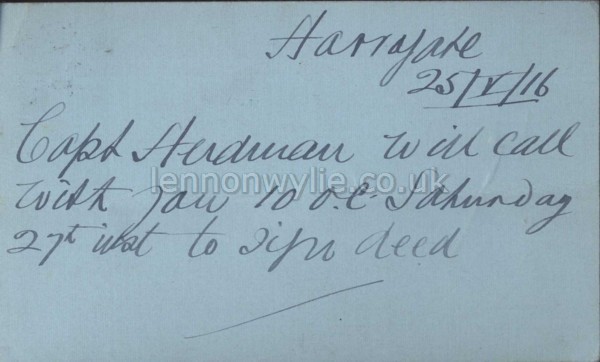 Harrogate
25/V/16
Capt Herdman will call
with you 10 o.c. Saturday
lennonwylie.co.uk
27th inst to sign deed